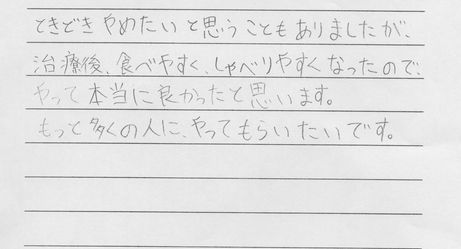 ときどきやめたいと思うこともありましたが、
治療後、食べやすく、しゃべりやすくなったので、
やって本当に良かったと思います。
もっと多くの人に、やってもらいたいです。